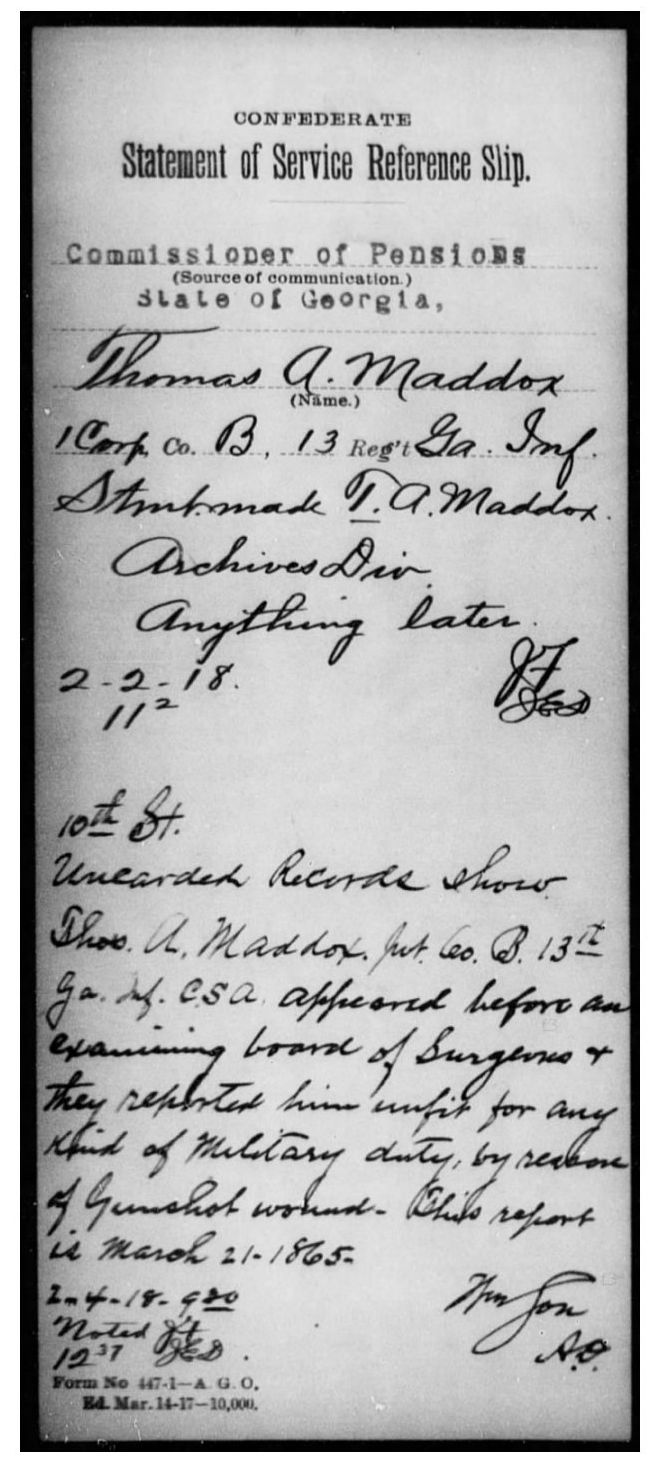 CONFEDERATE
Statement of Service Reference Slip.
Commissioner of Pensions
(Source of communication.)
State of Georgia,
Thomas A. Maddox
(Name.)
1 Corp Co. B, 13 Reg't Ga. Inf.
Stmt. made T. A. Maddox.
Archives Div.
Anything later.
2-2-18.
11²
JED
10th St.
Uncarded Records show
Thos. A. Maddox. pvt. Co. B. 13th
Ga. Inf. C.S.A. appeared before an
examining board of Surgeons +
they reported him unfit for any
kind of Military duty, by reason
of Gunshot wound - This report
is March 21-1865-
2-4-18-9 20
Noted
12 37 JED.
A.O.
Form No 447-1—A. G. O.
Ed. Mar. 14-17—10,000.